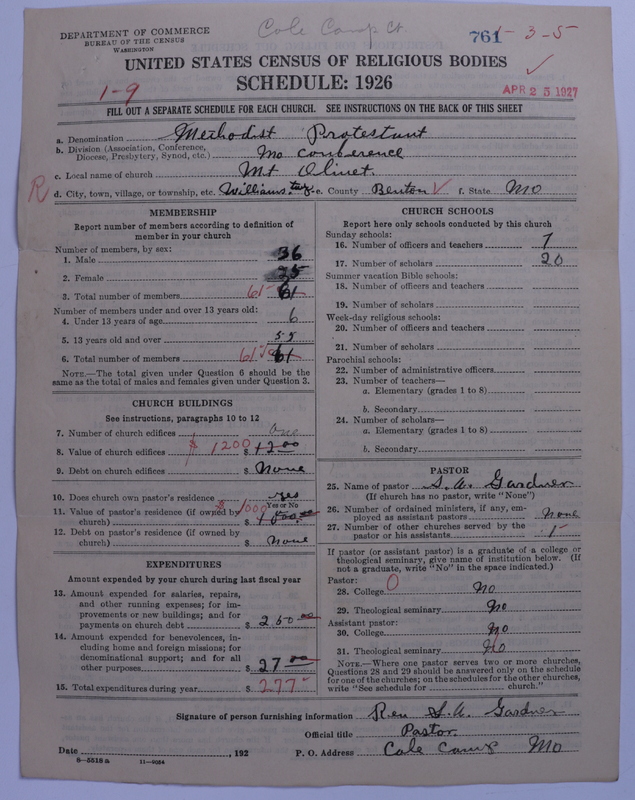 DEPARTMENT OF COMMERCE
BUREAU OF THE CENSUS
WASHINGTON
Cole Camp Ct
761 1-3-5
UNITED STATES CENSUS OF RELIGIOUS BODIES
SCHEDULE: 1926
1-9
APR 25 1927
FILL OUT A SEPARATE SCHEDULE FOR EACH CHURCH. SEE INSTRUCTIONS ON THE BACK OF THIS SHEET
a. Denomination Methodist Protestant
b. Division (Association, Conference, Diocese, Presbytery, Synod, etc.) Mo conference
c. Local name of church Mt Olivet
R d. City, town, village, or township, etc. Williams e. County Benton f. State MO
MEMBERSHIP
Report number of members according to definition of
member in your church
Number of members, by sex:
1. Male 36
2. Female 25
3. Total number of members 61 61
Number of members under and over 13 years old:
4. Under 13 years of age 6
5. 13 years old and over 55
6. Total number of members 61 61
NOTE.—The total given under Question 6 should be
same as the total of males and females given under Question 3.
CHURCH BUILDINGS
See instructions, paragraphs 10 to 12
7. Number of church edifices One
8. Value of church edifices $ 1200 $ 1200
9. Debt on church edifices $ None
10. Does church own pastor's residence yes
Yes or No
11. Value of pastor's residence (if owned by
church) $ 1000 $ 1000.00
12. Debt on pastor's residence (if owned by
church) $ None
EXPENDITURES
Amount expended by your church during last fiscal year
13. Amount expended for salaries, repairs,
and other running expenses; for im-
provements or new buildings; and for
payments on church debt $ 250.00
14. Amount expended for benevolences, in-
cluding home and foreign missions; for
denominational support; and for all
other purposes $ 27.00
15. Total expenditures during year $ 277
CHURCH SCHOOLS
Report here only schools conducted by this church
Sunday schools:
16. Number of officers and teachers 7
17. Number of scholars 20
Summer vacation Bible schools:
18. Number of officers and teachers
19. Number of scholars
Week-day religious schools:
20. Number of officers and teachers
21. Number of scholars
Parochial schools:
22. Number of administrative officers
23. Number of teachers—
a. Elementary (grades 1 to 8)
b. Secondary
24. Number of scholars—
a. Elementary (grades 1 to 8)
b. Secondary
PASTOR
25. Name of pastor S. A. Gardner
(If church has no pastor, write "None")
26. Number of ordained ministers, if any, em-
ployed as assistant pastors None
27. Number of other churches served by the
pastor or his assistants
If pastor (or assistant pastor) is a graduate of a college or
theological seminary, give name of institution below. (If
not a graduate, write "No" in the space indicated.)
Pastor:
28. College 0 No
29. Theological seminary No
Assistant pastor:
30. College No
31. Theological seminary No
NOTE.—Where one pastor serves two or more churches,
Questions 28 and 29 should be answered only on the schedule
for one of the churches; on the schedules for the other churches,
write "See schedule for church."
Signature of person furnishing information Rev S. A. Gardner
Official title Pastor
Date , 192 P. O. Address Cole Camp Mo
8-5518 a 11-9054